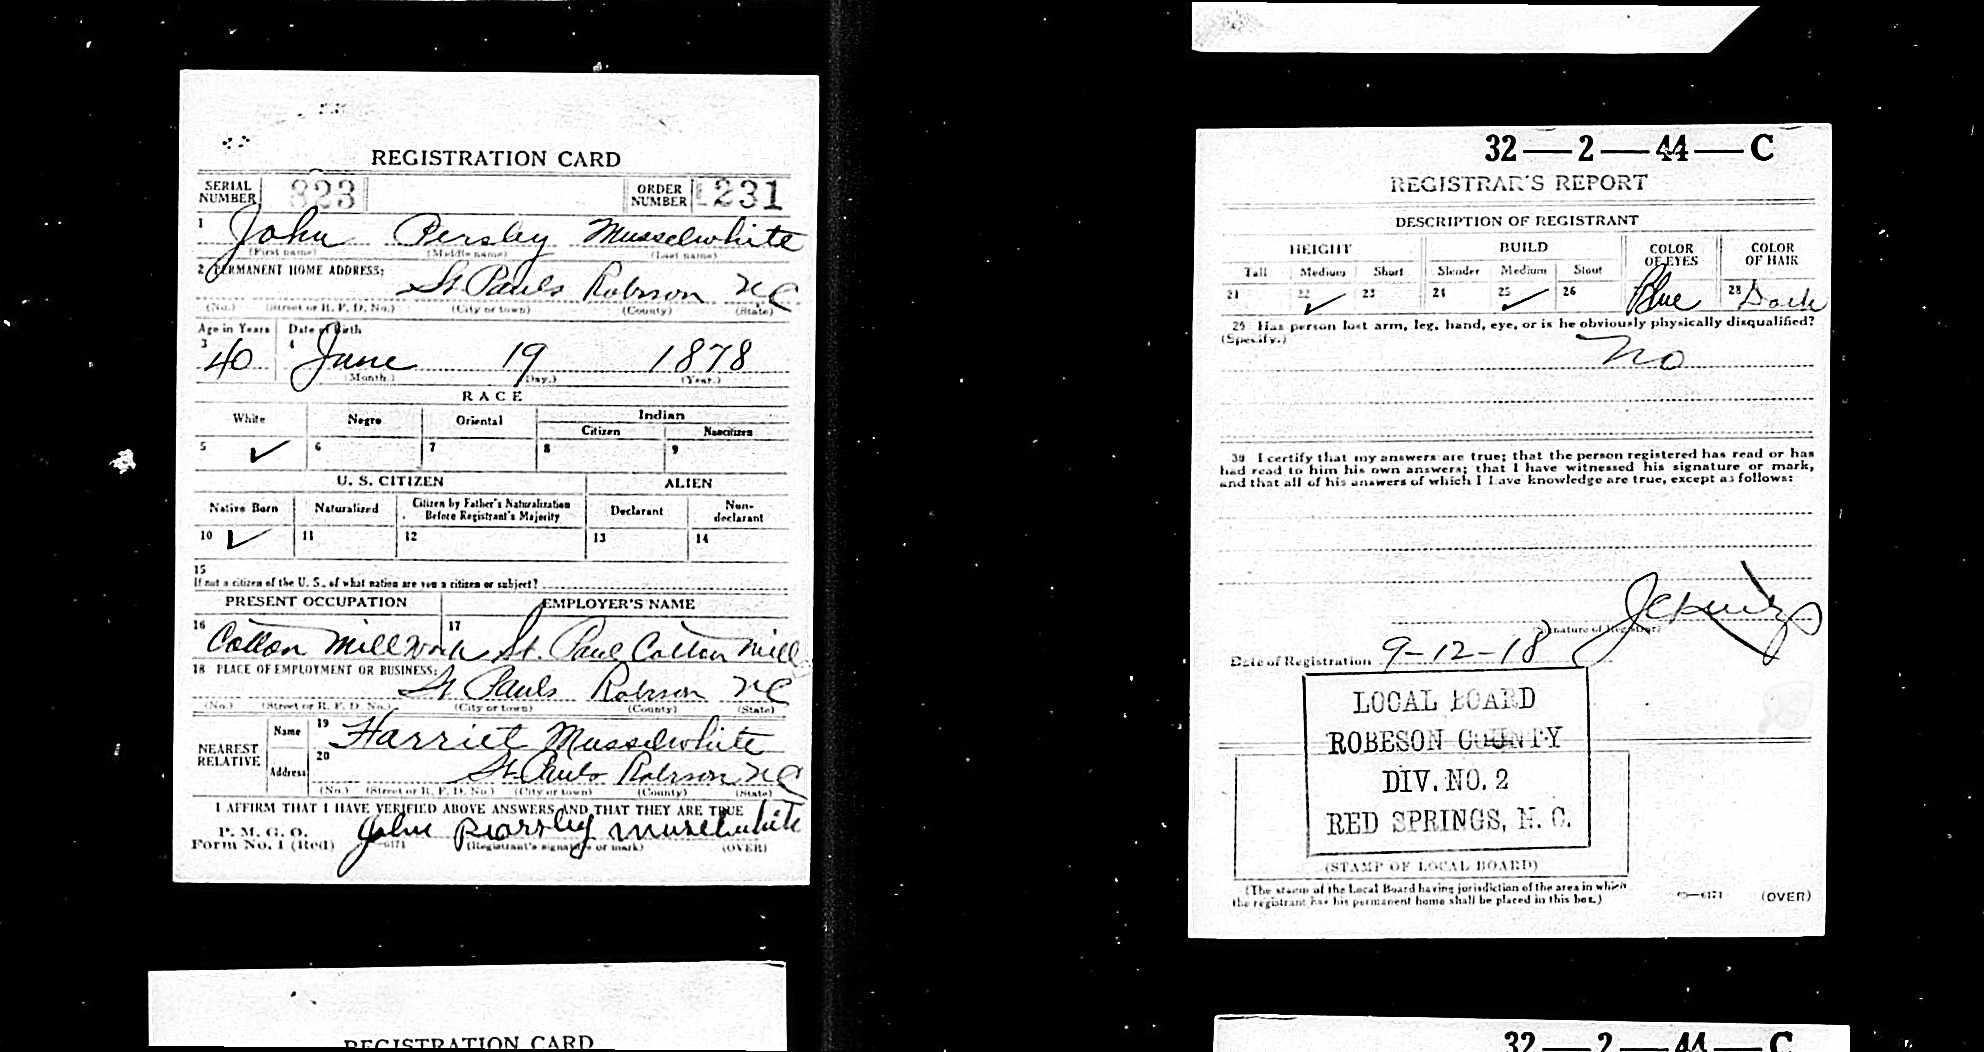 REGISTRATION CARD
SERIAL NUMBER 823 ORDER NUMBER 231
1 John Persley Musselwhite
(First name) (Middle name) (Last name)
2 PERMANENT HOME ADDRESS: St Pauls Robison NC
(No.) (Street or R. F. D. No.) (City or town) (County) (State)
Age in Years Date of Birth
3 40 4 June 19 1878
(Month.) (Day.) (Year.)
RACE
White Negro Oriental Indian
Citizen Noncitizen
5 ✓ 6 7 8 9
U. S. CITIZEN ALIEN
Native Born Naturalized Citizen by Father's Naturalization Before Registrant's Majority Declarant Non-declarant
10 ✓ 11 12 13 14
15
If not a citizen of the U. S., of what nation are you a citizen or subject?
PRESENT OCCUPATION EMPLOYER'S NAME
16 Cotton Mill Work 17 St. Paul Cotton Mill
18 PLACE OF EMPLOYMENT OR BUSINESS: St Pauls Robison NC
(No.) (Street or R. F. D. No.) (City or town) (County) (State)
NEAREST RELATIVE Name 19 Harriet Musselwhite
Address 20 St Pauls Robison NC
(No.) (Street or R. F. D. No.) (City or town) (County) (State)
I AFFIRM THAT I HAVE VERIFIED ABOVE ANSWERS AND THAT THEY ARE TRUE
P. M. G. O.
Form No. 1 (Red) John
(Registrant's signature or mark) (OVER)
REGISTRATION CARD
32—2—44—C
REGISTRAR'S REPORT
DESCRIPTION OF REGISTRANT
HEIGHT BUILD COLOR OF EYES COLOR OF HAIR
Tall Medium Short Slender Medium Stout
21 22 ✓ 23 24 25 ✓ 26 Blue 28 Dark
29 Has person lost arm, leg, hand, eye, or is he obviously physically disqualified?
(Specify.) no
30 I certify that my answers are true; that the person registered has read or has
had read to him his own answers; that I have witnessed his signature or mark,
and that all of his answers of which I have knowledge are true, except as follows:
(Signature of Registrar)
Date of Registration 9-12-18
LOCAL BOARD
ROBESON COUNTY
DIV. NO. 2
RED SPRINGS, N. C.
(STAMP OF LOCAL BOARD)
(The stamp of the Local Board having jurisdiction of the area in which
the registrant has his permanent home shall be placed in this box.)
(OVER)
32—2—44—C